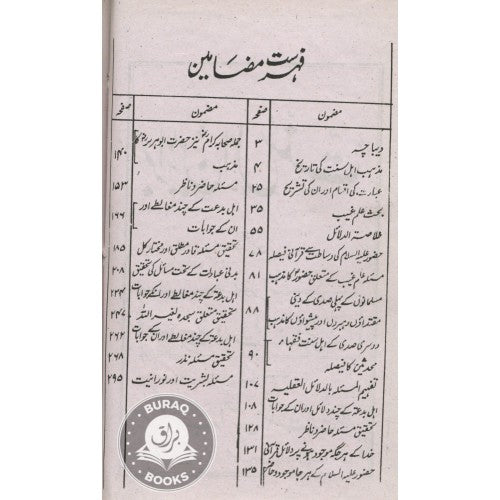 فہرست مضامین
مضمون صفحہ
دیباچہ ۳
مذہب اہل سنت کی تاریخ ۴
عبادت کی اقسام اور ان کی تشریح ۲۵
بحث علم غیب ۳۵
خلاصۃ الدلائل ۵۵
حضور علیہ السلام کی رسالت سے قرآنی فیصلہ ۷۸
مسئلہ علم غیب کے متعلق حضورؐ کا مذہب ۸۱
مسلمانوں کے پہلی صدی کے دینی
مقتداؤں رہبروں اور پیشواؤں کا مذہب ۸۸
دوسری صدی کے اہل سنت فقہاء
محدثین کا فیصلہ ۹۰
تفہیم المسئلہ بالدلائل العقلیہ ۱۰۷
اہل بدعۃ کے چند دلائل اور ان کے جوابات ۱۰۸
تحقیق مسئلہ حاضر و ناظر ۱۲۸
خدا کے ہر جگہ موجود ہونے پر دلائل قرآنی ۱۳۱
حضور علیہ السلام کے ہر جا موجود و حاضر ۱۳۵
مضمون صفحہ
جملہ صحابہ کرام نیز حضرت ابوہریرہؓ کا
مذہب ۱۴۰
مسئلہ حاضر و ناظر ۱۵۳
اہل بدعت کے چند مغالطے اور
ان کے جوابات ۱۶۶
تحقیق مسئلہ قادر مطلق اور مختار کل ۱۸۵
بدنی عبادات کے تحت مسائل کی تحقیق ۲۰۸
اہل بدعۃ کے چند مغالطے اور انکے جوابات ۲۲۴
تحقیق متعلق سجدہ لغیر اللہ ۲۴۷
اہل بدعۃ کے چند مغالطے اور ان کے جوابات ۲۶۲
تحقیق مسئلہ نذر ۲۶۸
مسئلہ بشریت اور نورانیت ۲۹۵
BURAQ
براق
BOOKS